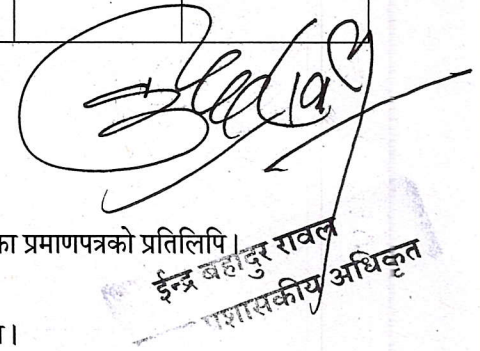 का प्रमाणपत्रको प्रतिलिपि।
ईन्द्र बहादुर रावल
प्रशासकीय अधिकृत
।